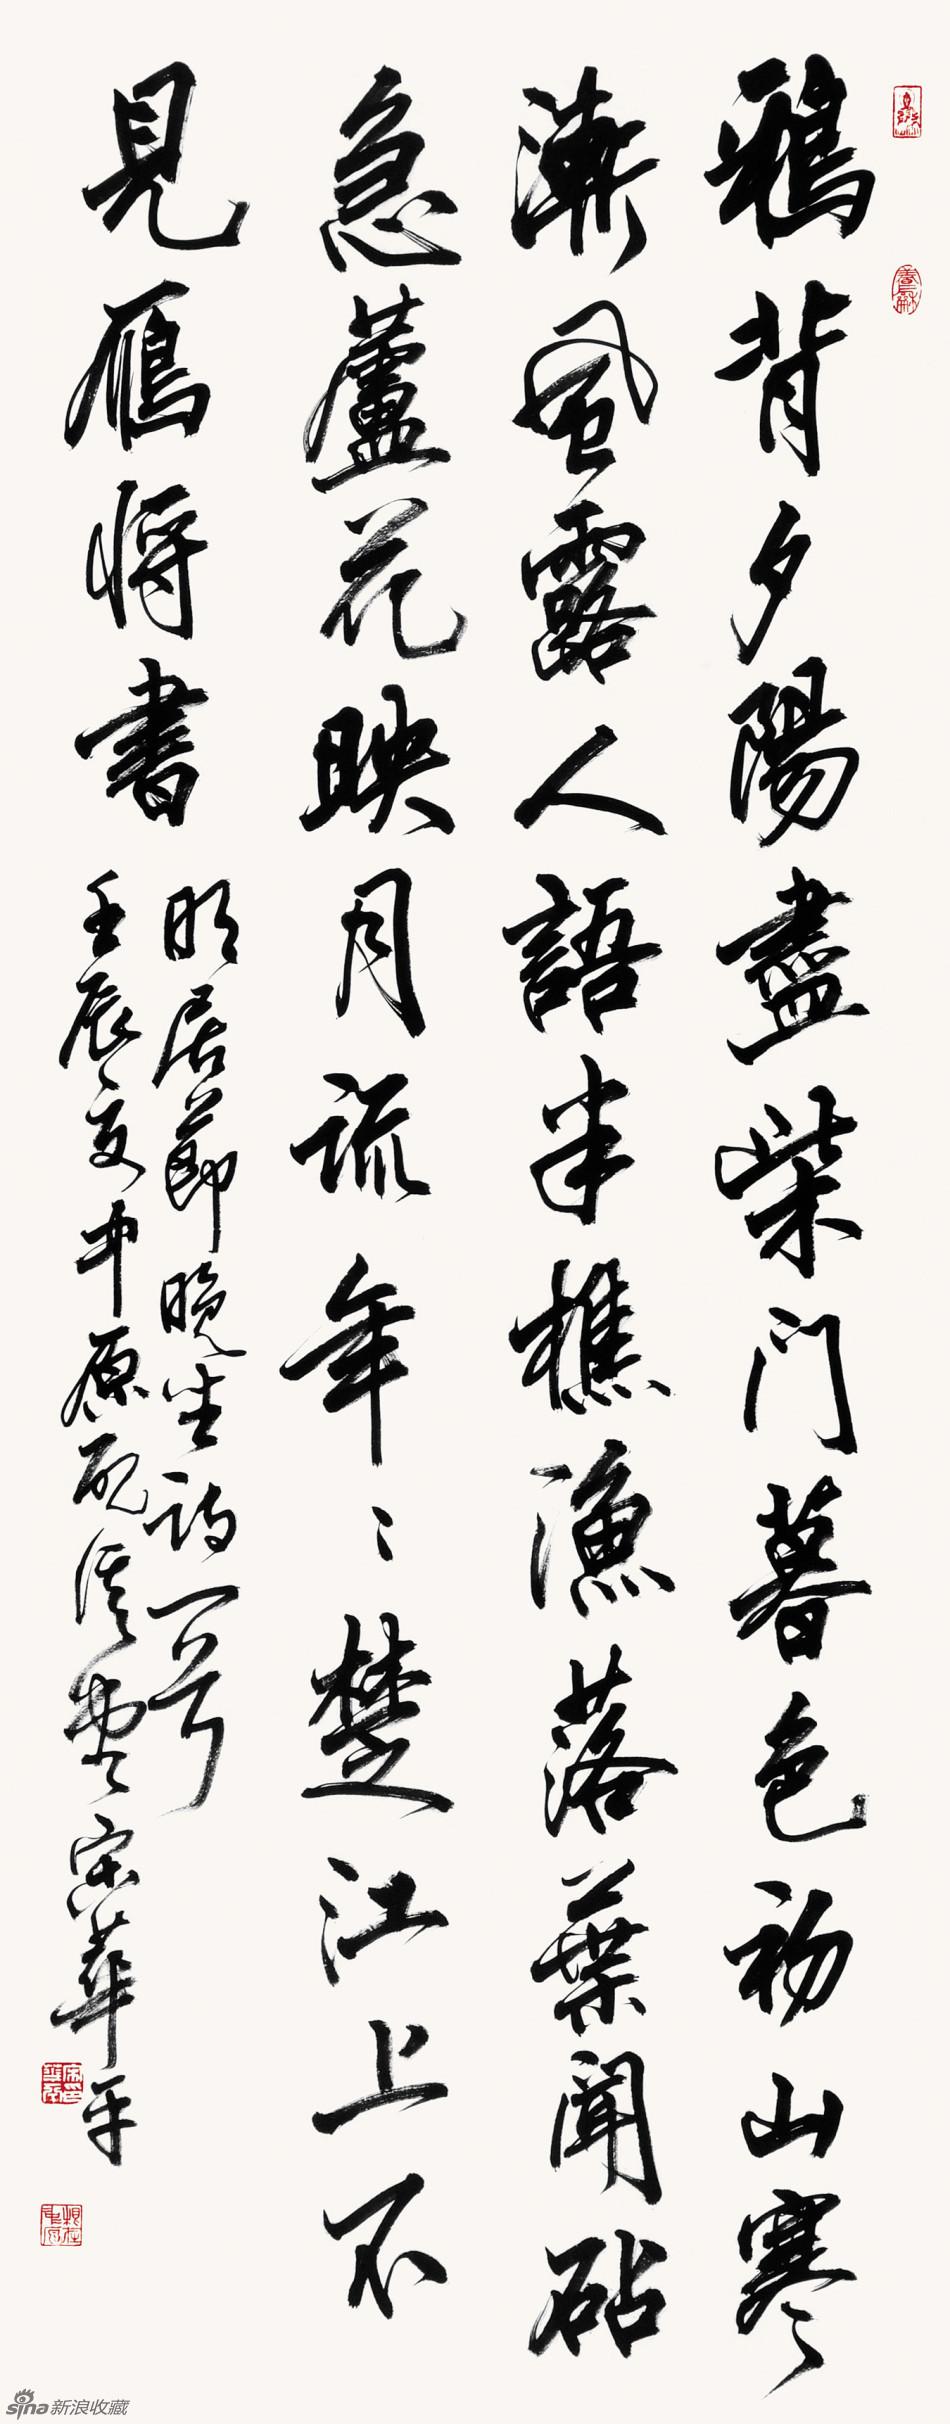 鴉背夕陽盡柴門暮色初山寒
漸風露人語半樵漁落葉聞砧
急蘆花映月疏年〻楚江上不
見鴈將書
明居節晚坐詩一首
壬辰夏中原硯堂宋華平
sina新浪收藏